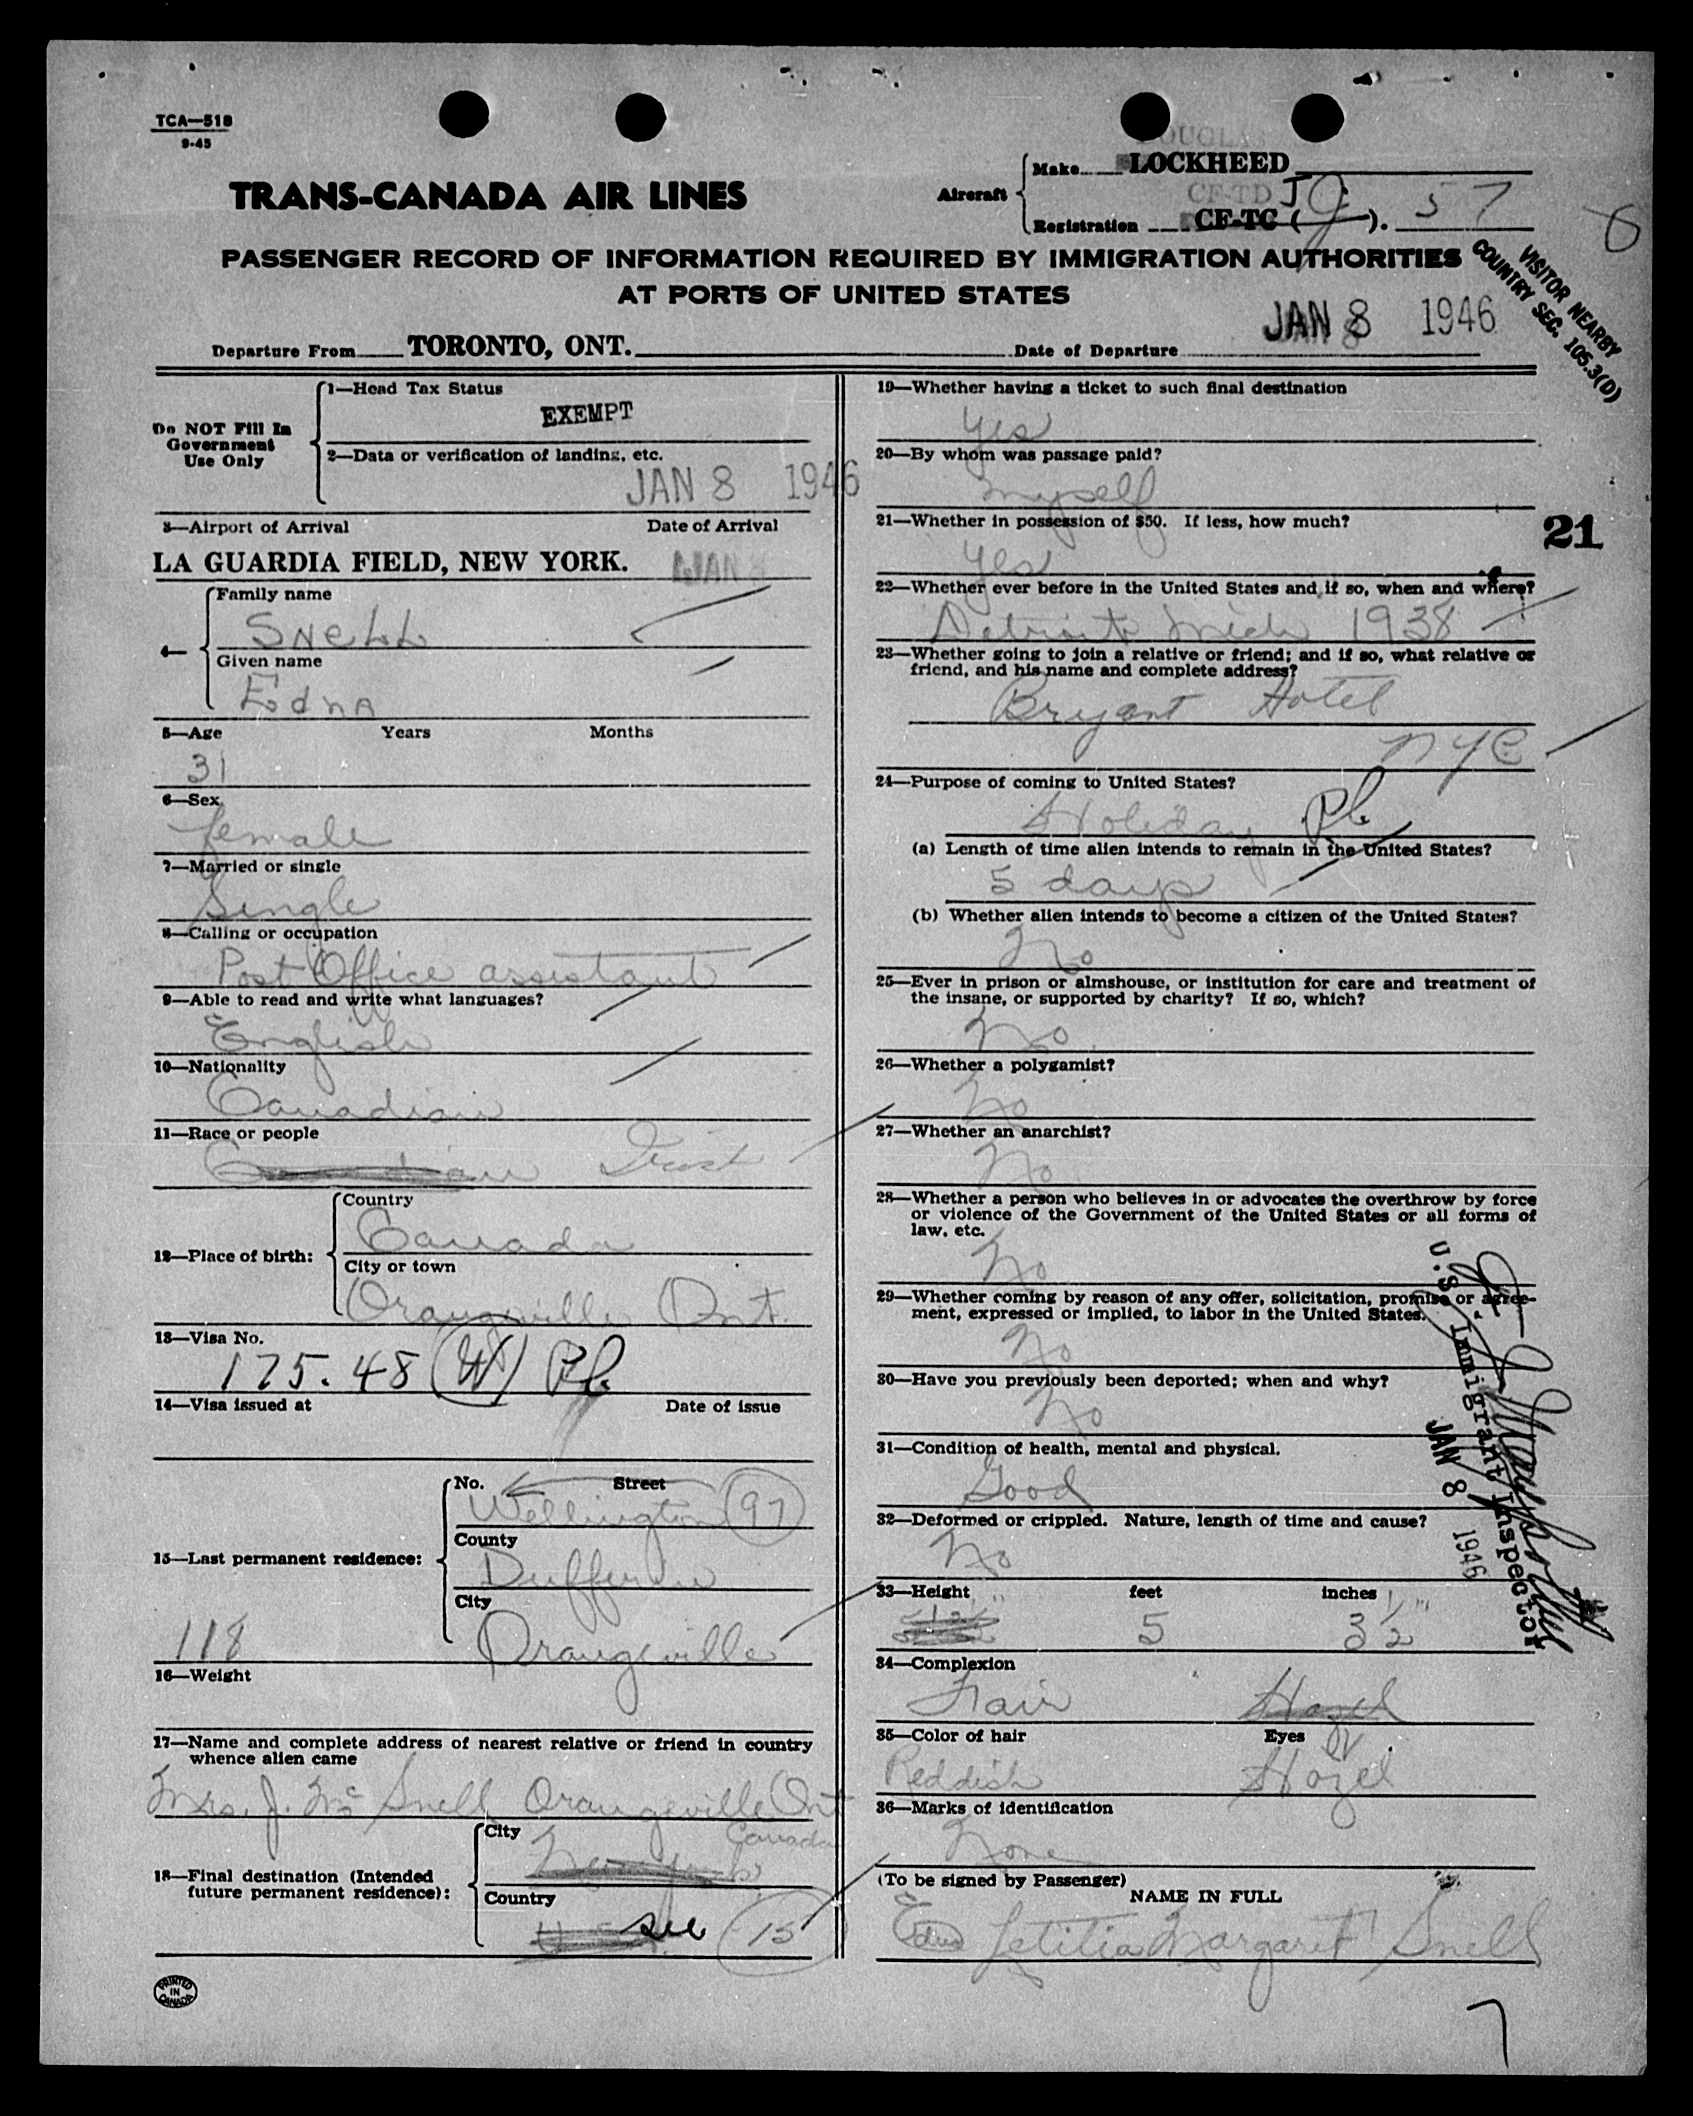 TCA—518
9-45
DOUGLAS
Make LOCKHEED
TRANS-CANADA AIR LINES
Aircraft
CF-TD J
Registration CF-TC ( ). 57
6
PASSENGER RECORD OF INFORMATION REQUIRED BY IMMIGRATION AUTHORITIES
AT PORTS OF UNITED STATES
VISITOR NEARBY
COUNTRY SEC. 105.3(D)
Departure From TORONTO, ONT. Date of Departure JAN 8 1946
Do NOT Fill In
Government
Use Only
1—Head Tax Status
EXEMPT
2—Data or verification of landing, etc.
JAN 8 1946
3—Airport of Arrival Date of Arrival
LA GUARDIA FIELD, NEW YORK. JAN 8
4—
Family name
Snell
Given name
Edna
5—Age Years Months
31
6—Sex
female
7—Married or single
Single
8—Calling or occupation
Post Office assistant
9—Able to read and write what languages?
English
10—Nationality
Canadian
11—Race or people
Canadian Irish
12—Place of birth:
Country
Canada
City or town
Orangeville Ont.
13—Visa No.
175.48 (W)
14—Visa issued at Date of issue
15—Last permanent residence:
No. Street
Wellington (97)
County
Dufferin
City
Orangeville
118
16—Weight
17—Name and complete address of nearest relative or friend in country
whence alien came
Mrs. J. Mc Snell Orangeville Ont
Canada
18—Final destination (Intended
future permanent residence):
City
New York
Country
see 15
PRINTED
IN
CANADA
19—Whether having a ticket to such final destination
Yes
20—By whom was passage paid?
Myself
21—Whether in possession of $50. If less, how much?
Yes
21
22—Whether ever before in the United States and if so, when and where?
Detroit Mich 1938
23—Whether going to join a relative or friend; and if so, what relative or
friend, and his name and complete address?
Bryant Hotel
NYC
24—Purpose of coming to United States?
Holiday
(a) Length of time alien intends to remain in the United States?
5 days
(b) Whether alien intends to become a citizen of the United States?
No
25—Ever in prison or almshouse, or institution for care and treatment of
the insane, or supported by charity? If so, which?
No
26—Whether a polygamist?
No
27—Whether an anarchist?
No
28—Whether a person who believes in or advocates the overthrow by force
or violence of the Government of the United States or all forms of
law, etc.
No
29—Whether coming by reason of any offer, solicitation, promise or agree-
ment, expressed or implied, to labor in the United States.
No
30—Have you previously been deported; when and why?
No
31—Condition of health, mental and physical.
Good
32—Deformed or crippled. Nature, length of time and cause?
No
33—Height feet inches
5 3 1/2"
34—Complexion
Fair Hazel
35—Color of hair Eyes
Reddish Hazel
36—Marks of identification
None
(To be signed by Passenger)
NAME IN FULL
Edna Letitia Margaret Snell
U.S. Immigrant Inspector
JAN 8 1946
7